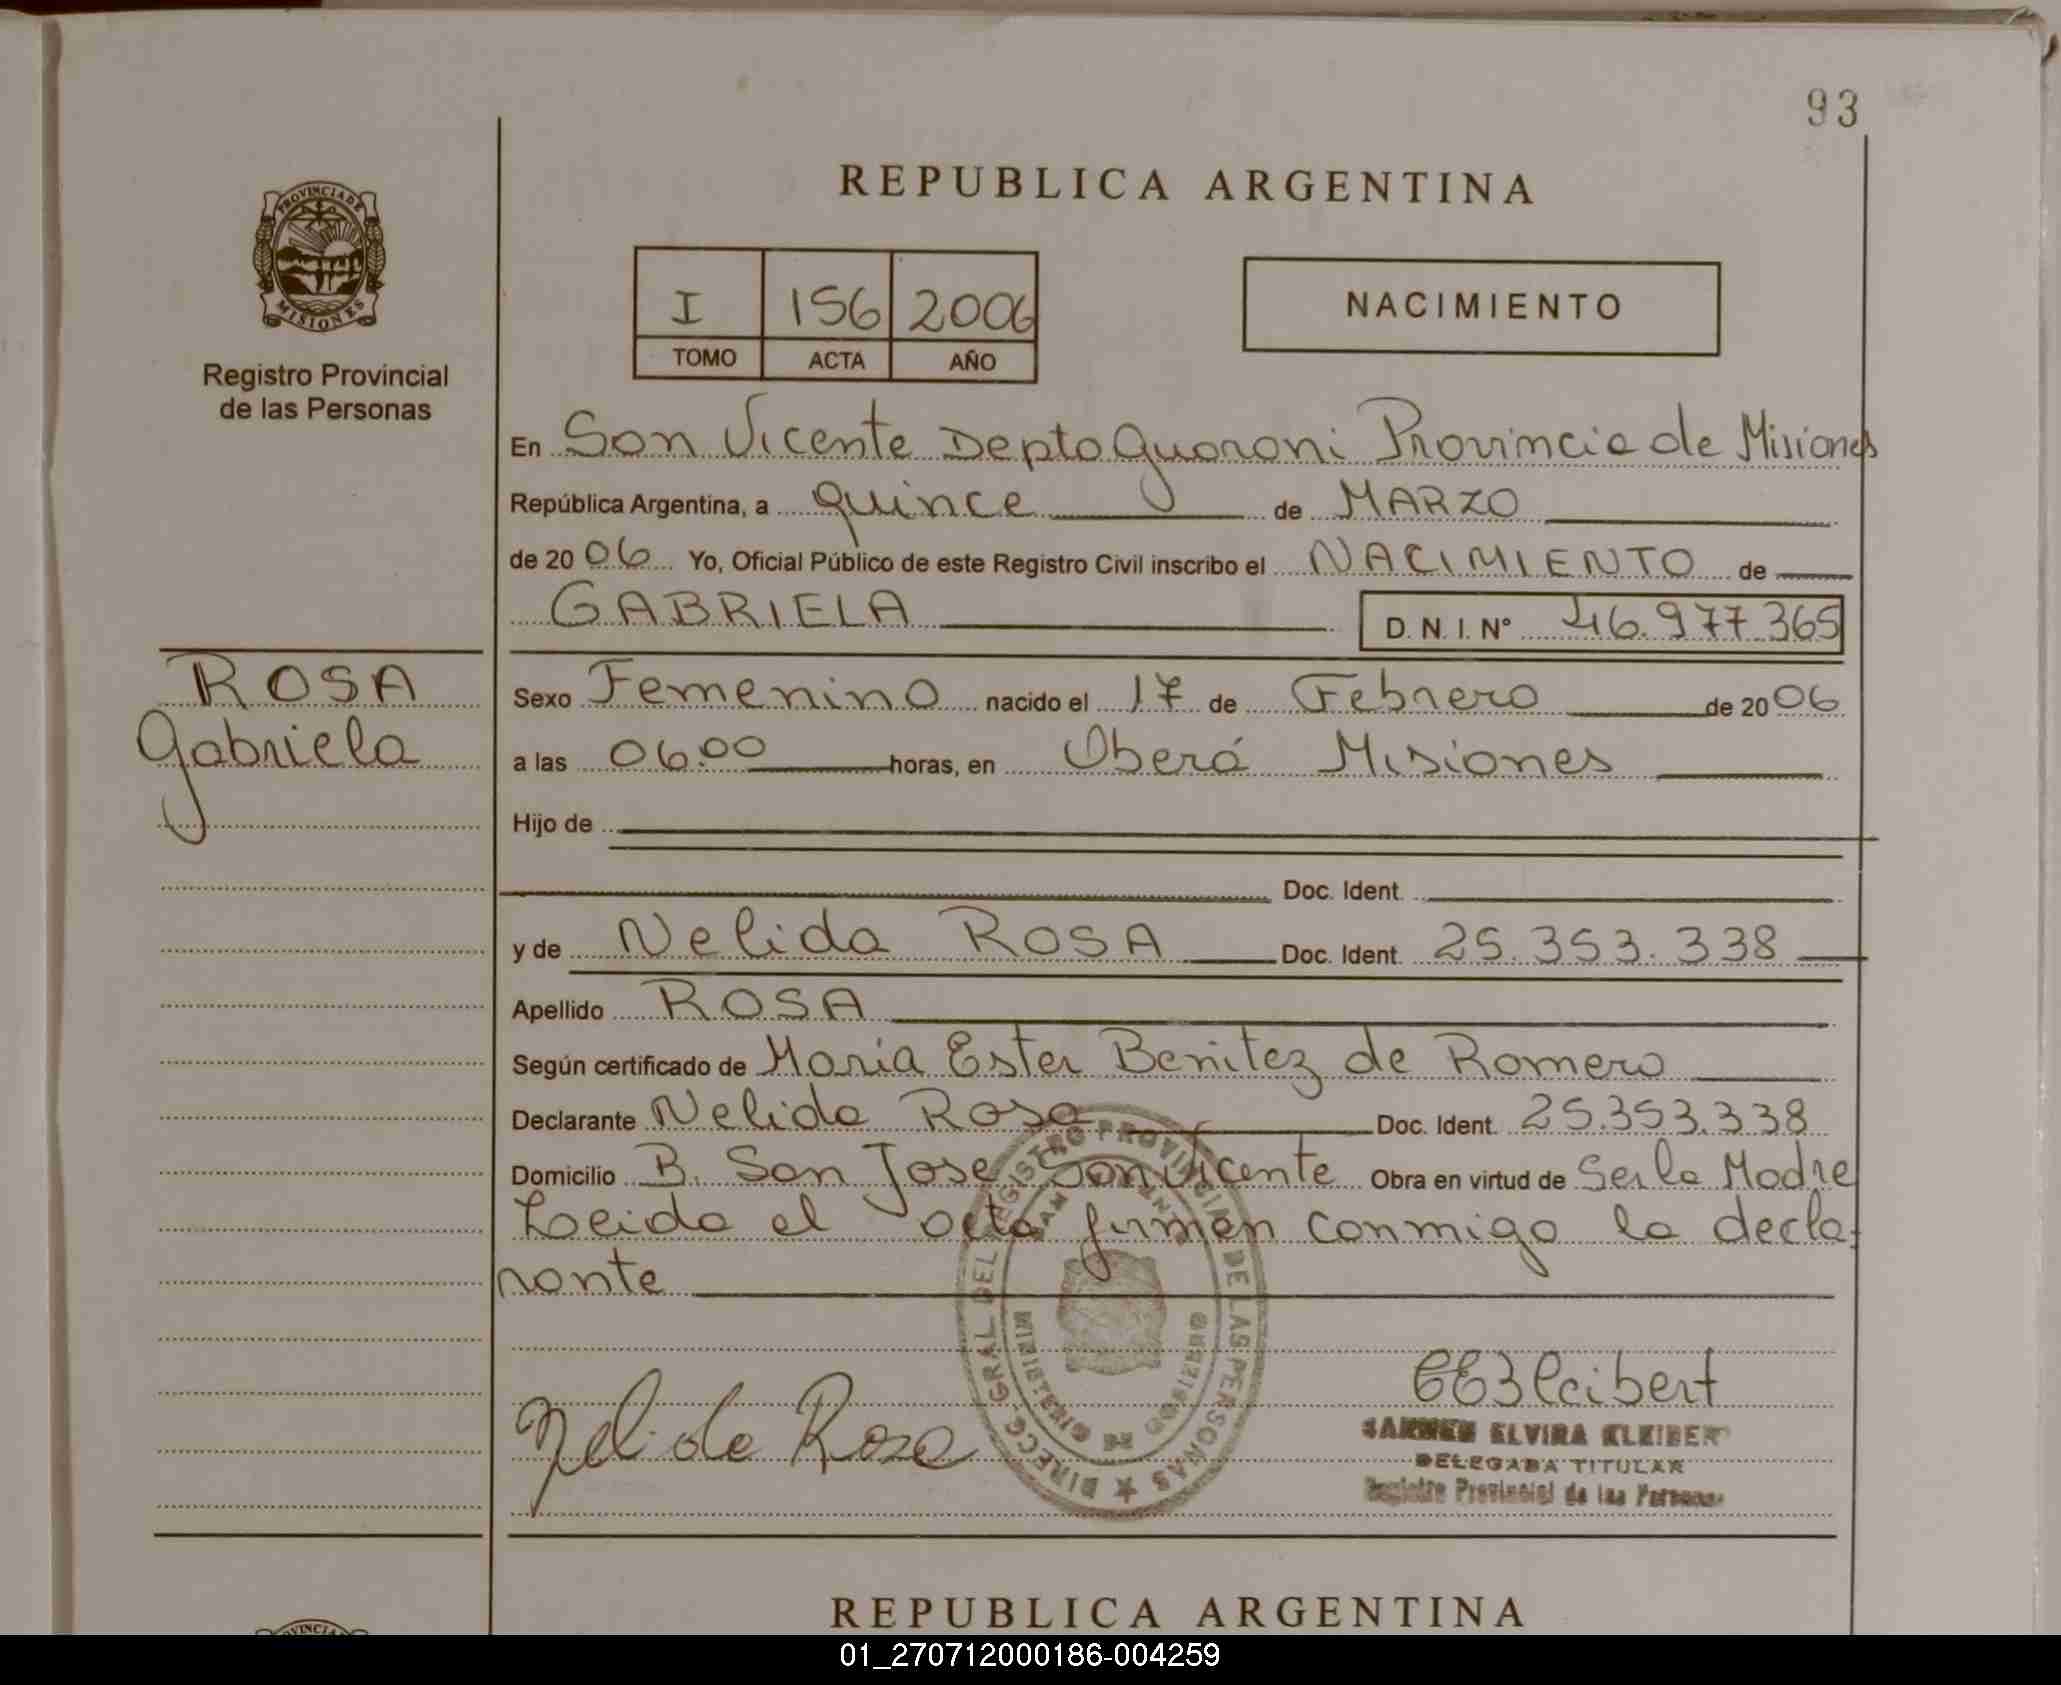 93
PROVINCIA DE
MISIONES
Registro Provincial
de las Personas
REPUBLICA ARGENTINA
I 156 2006
TOMO ACTA AÑO
NACIMIENTO
En San Vicente Depto Guarani Provincia de Misiones
República Argentina, a quince de MARZO
de 20 06 Yo, Oficial Público de este Registro Civil inscribo el NACIMIENTO de
GABRIELA D.N.I. N° 46.977.365
ROSA
Gabriela
Sexo Femenino nacido el 17 de Febrero de 20 06
a las 06.00 horas, en Oberá Misiones
Hijo de
Doc. Ident.
y de Nelida ROSA Doc. Ident. 25.353.338
Apellido ROSA
Según certificado de Maria Ester Benitez de Romero
Declarante Nelida Rosa Doc. Ident. 25.353.338
Domicilio B. San Jose San Vicente Obra en virtud de Ser la Madre
Leida el acta firman conmigo la decla-
rante
DIRECC. GRAL. DEL REGISTRO PROVINCIAL DE LAS PERSONAS
Nelida Rosa
CEKleibert
CARMEN ELVIRA KLEIBERT
DELEGADA TITULAR
Registro Provincial de las Personas
REPUBLICA ARGENTINA
01_270712000186-004259